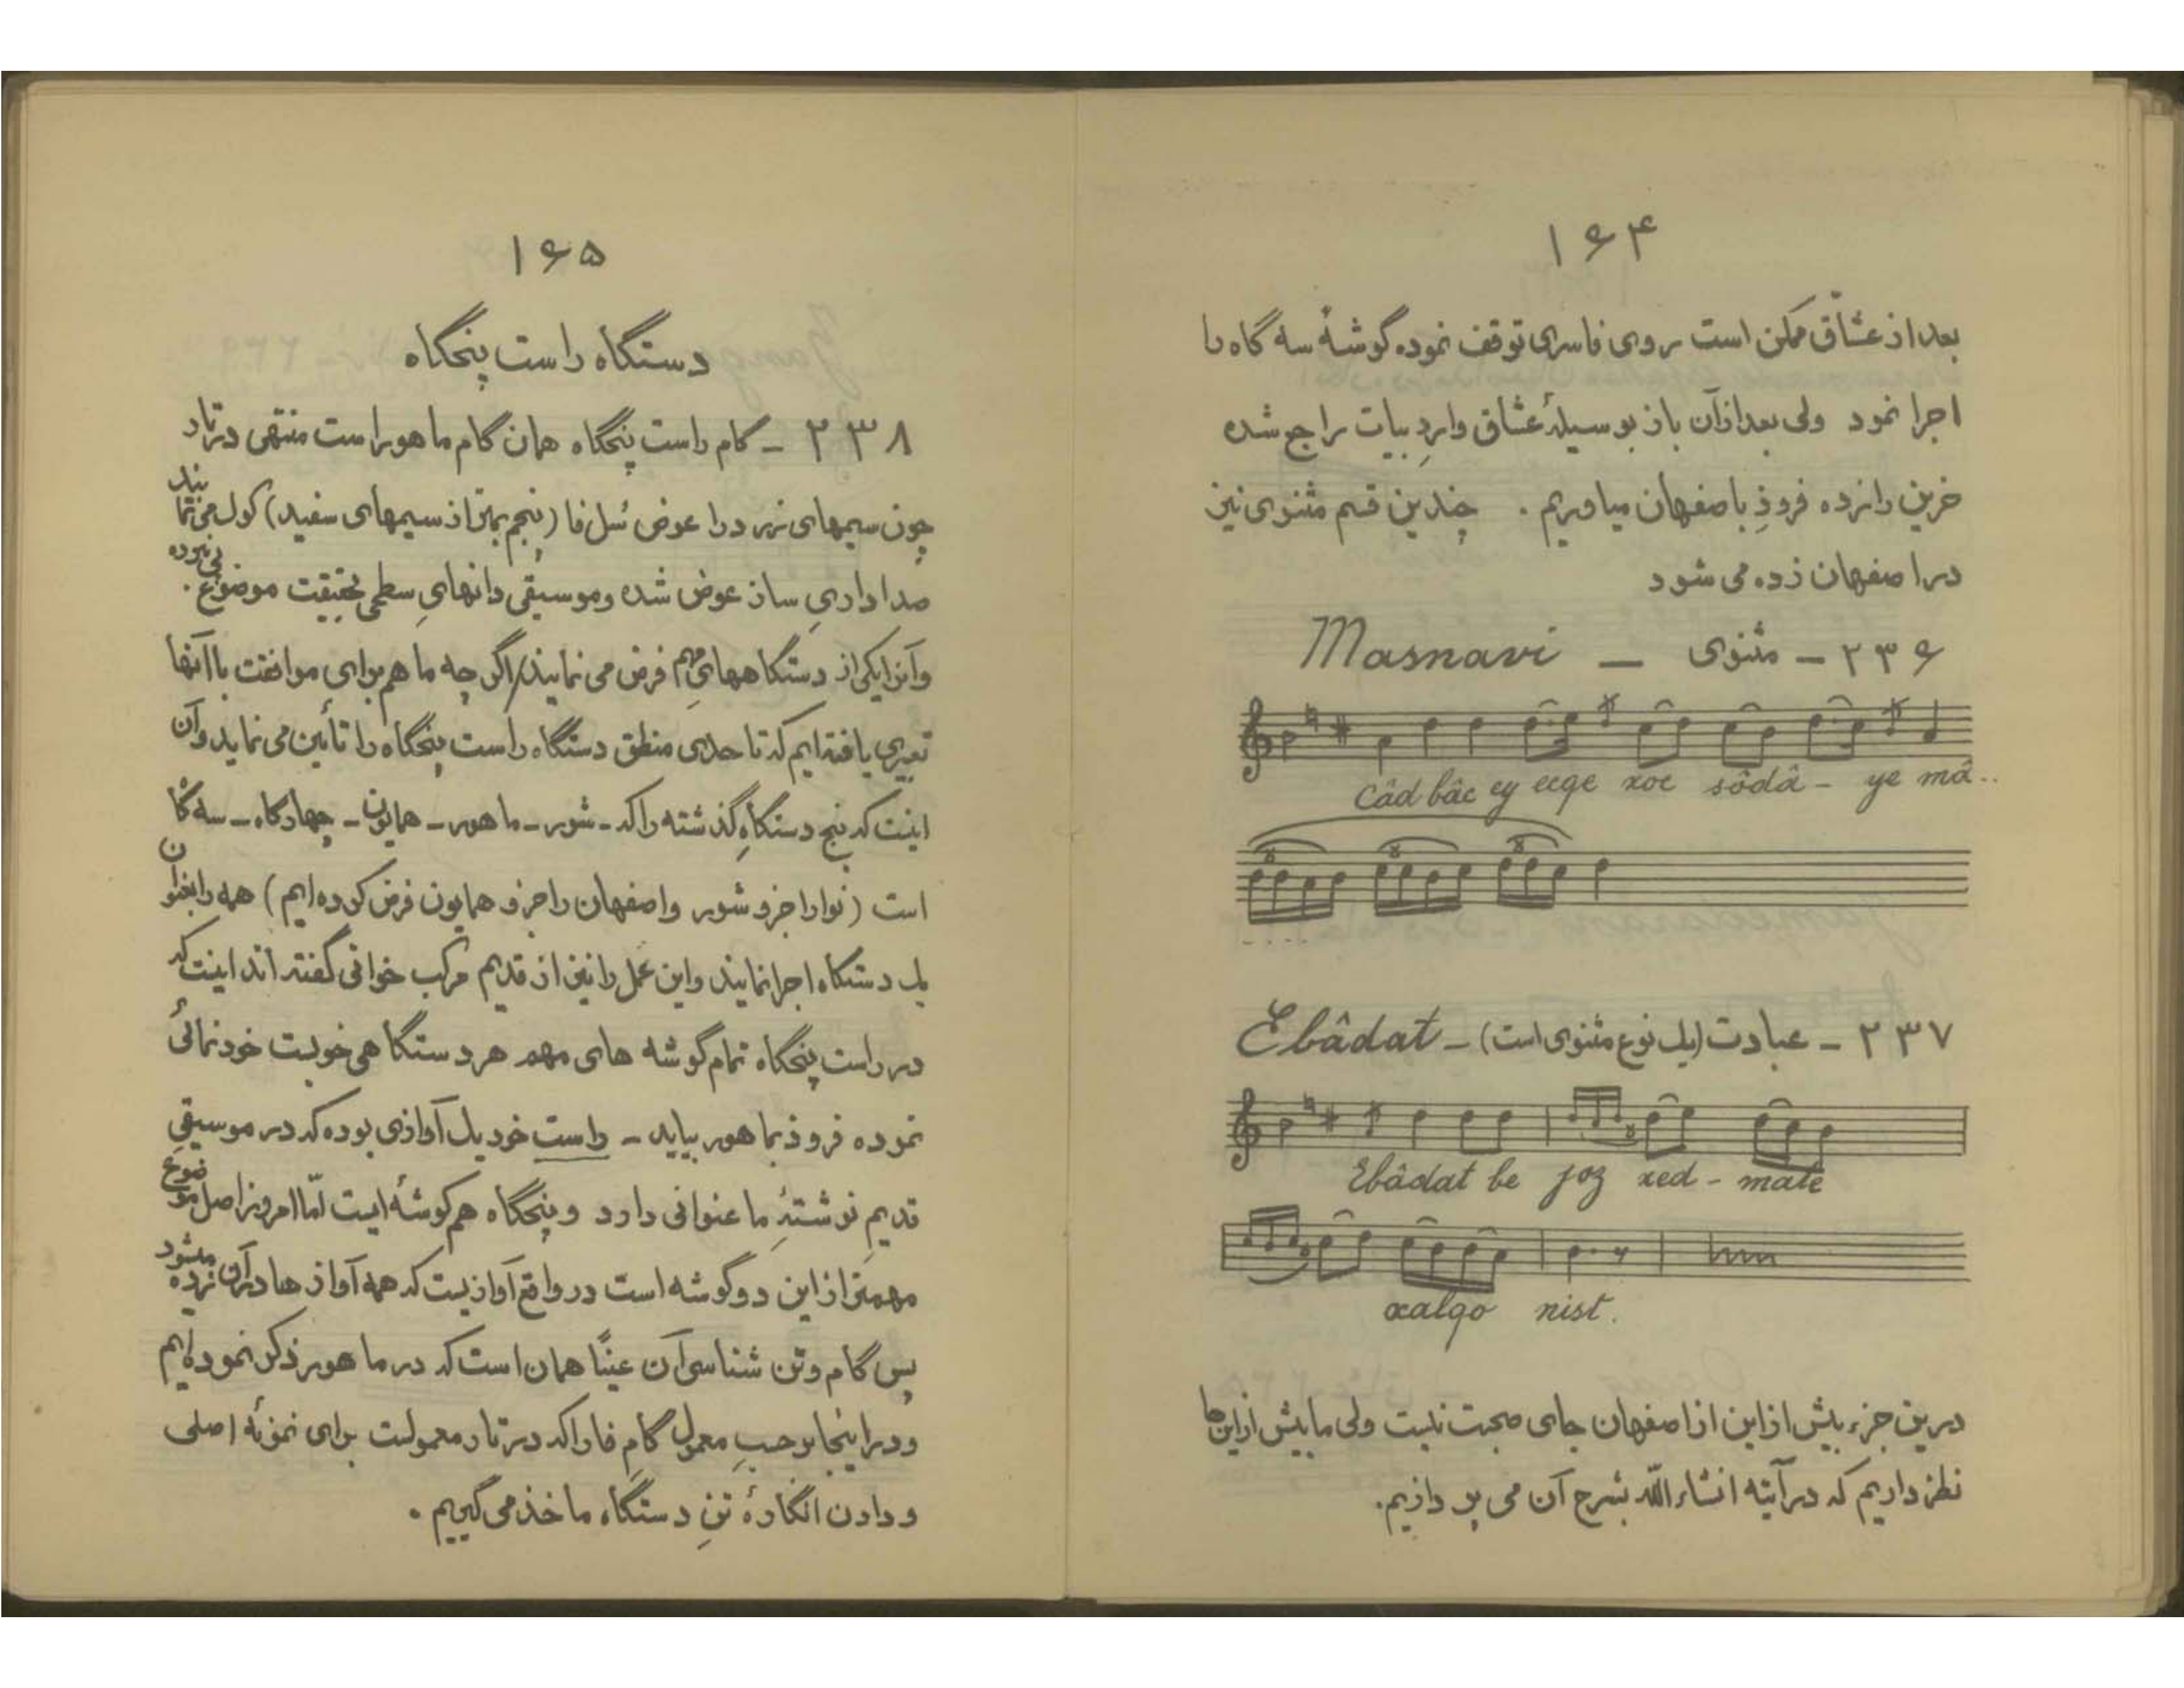 ۱۶۴
بعد از عشّاق ممکن است روی فاسری توقف نموده گوشهٔ سه گاه را
اجرا نمود ولی بعد از آن باز بوسیلهٔ عشّاق واردِ بیات راجع شده
فرود باصفهان میاوریم . چندین قسم مثنوی نیز
در اصفهان زده می شود
۲۳۶ – مثنوی — Masnavi
Câd bâc ey ecqe xoc sôdâ - ye mâ..
۲۳۷ – عبادت (یک نوع مثنوی است) – Ebâdat
Ebâdat be joz xed - mate
xalqo nist.
درین جزء بیش از این از اصفهان جای صحبت نیست ولی ما بیش از اینها
نظر داریم که در آتیه انشاء اللّه بشرح آن می پردازیم.
۱۶۵
دستگاه راست پنجگاه
۲۳۸ – گام راست پنجگاه همان گام ماهور است منتهی در تار
چون سیمهای زرد را عوض سُل فا (پنجم بمتر از سیمهای سفید) کوک می نمایند
صدا داریِ ساز عوض شده و موسیقی دانهایِ سطحی بحقیقت موضوع پی نبرده
و آنرا یکی از دستگاههایِ مهم فرض می نمایند / اگر چه ما هم برای موافقت با آنها
تعبیری یافته ایم که تا حدی منطق دستگاه راست پنجگاه را تأمین می نماید و آن
اینست که پنج دستگاهِ گذشته را که – شور – ماهور – همایون – چهارگاه – سه گاه
است (نوا را جزو شور و اصفهان را جزو همایون فرض کرده ایم) همه را بعنوان
یک دستگاه اجرا نمایند و این عمل را نیز از قدیم مرکب خوانی گفته اند اینست که
در راست پنجگاه تمام گوشه های مهم هر دستگاهی خودنمائی
نموده فرود بماهور بیاید – راست خود یک آوازی بوده که در موسیقیِ
قدیمِ نوشتهٔ ما عنوانی دارد و پنجگاه هم گوشه ایست امّا امروز اصل موضوع
مهمتر از این دو گوشه است در واقع آوازیست که همه آوازها در آن زده میشود
پس گام و تن شناسی آن عینًا همان است که در ماهور ذکر نموده ایم
و در اینجا بر حسبِ معمول گامِ فا را که در تار معمولست برای نمونهٔ اصلی
و دادن انگارهٔ تنِ دستگاه ماخذ می گیریم .